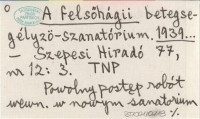 A felsőhágii betegse-
gélyző-szanatórium. 1939...
— Szepesi Hiradó 77,
nr 12: 3. TNP
Powolny postęp robót
wewn. w nowym sanatorium
%